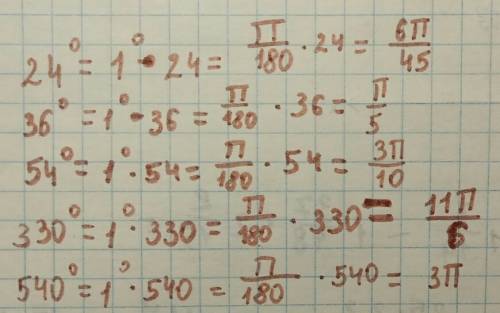 24° = 1° · 24 = П/180 · 24 = 6П/45
36° = 1° · 36 = П/180 · 36 = П/5
54° = 1° · 54 = П/180 · 54 = 3П/10
330° = 1° · 330 = П/180 · 330 = 11П/6
540° = 1° · 540 = П/180 · 540 = 3П